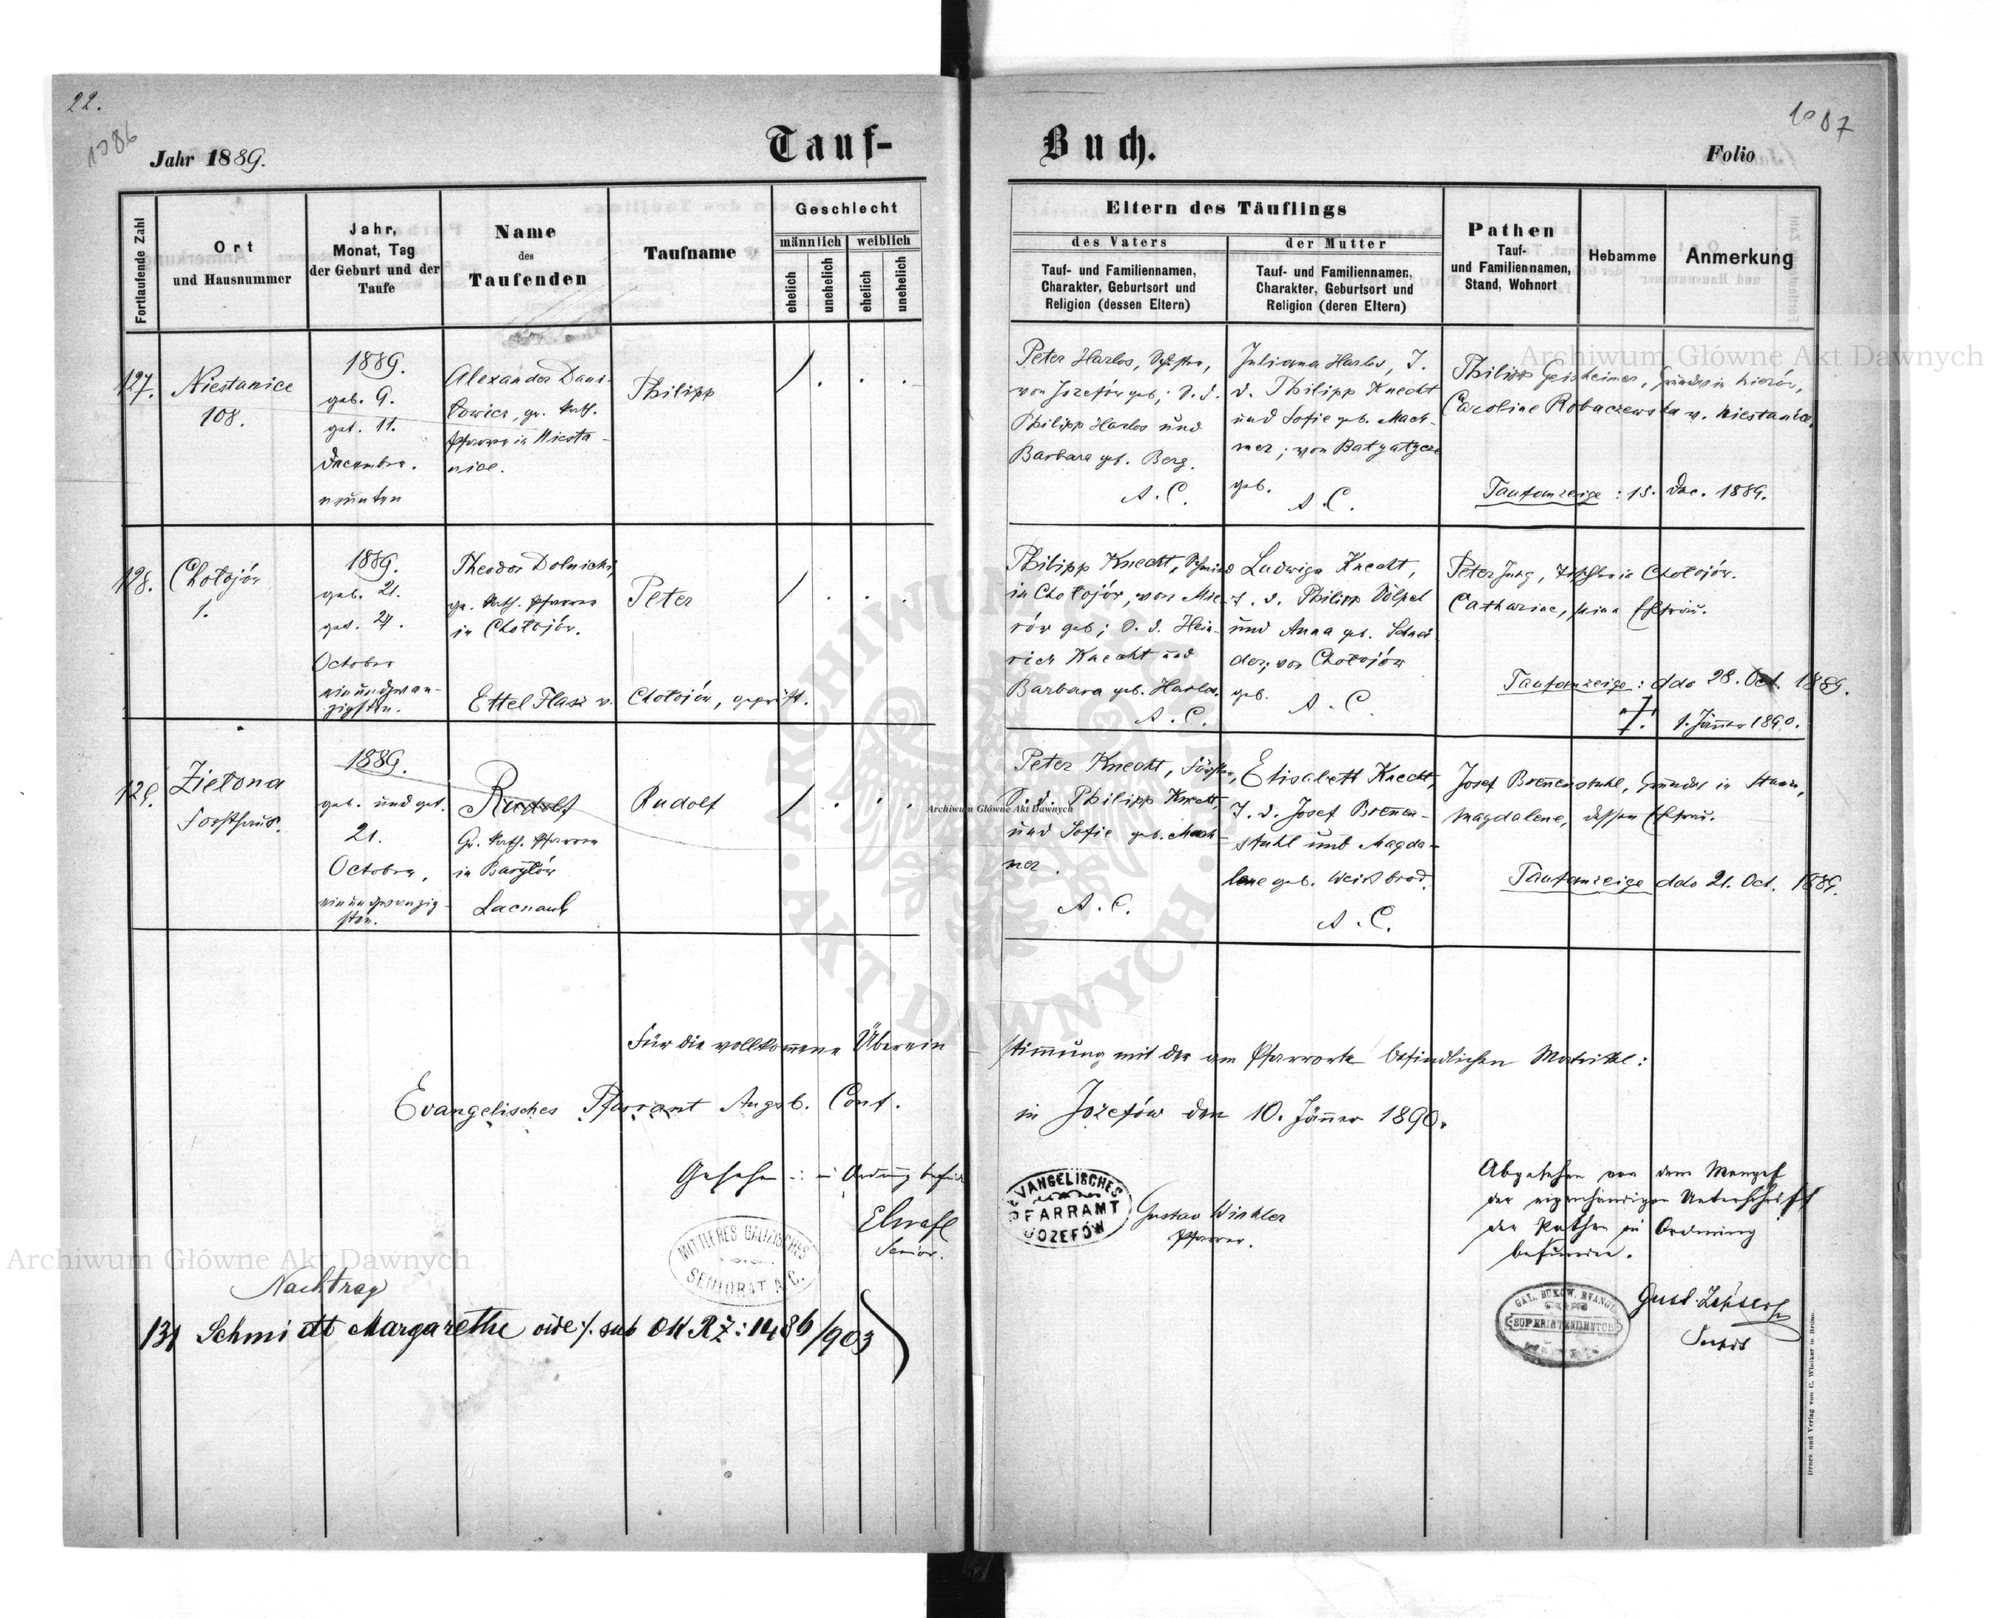 22.
1086
1087
Jahr 1889.
Tauf-
Buch.
Folio
Fortlaufende Zahl
Ort
und Hausnummer
Jahr,
Monat, Tag
der Geburt und der
Taufe
Name
des
Taufenden
Taufname
Geschlecht
männlich
weiblich
ehelich
unehelich
ehelich
unehelich
Eltern des Täuflings
des Vaters
der Mutter
Tauf- und Familiennamen,
Charakter, Geburtsort und
Religion (dessen Eltern)
Tauf- und Familiennamen,
Charakter, Geburtsort und
Religion (deren Eltern)
Pathen
Tauf-
und Familiennamen,
Stand, Wohnort
Hebamme
Anmerkung
127.
Niestanice
108.
1889.
geb. 9.
get. 11.
December.
neunten
Alexander Dani-
lowicz, gr. kath.
Pfarrer in Niesta-
nice.
Philipp
Peter Harlos,
von Józefów geb; S. d.
Philipp Harlos und
Barbara geb. Berg.
A. C.
Juliana Harlos, T.
d. Philipp Knecht
und Sofie geb. Mach-
mer; von Batyatycze
geb.
A. C.
Philipp Geisheimer,
Caroline Robaczewska v. Niestanice.
Taufanzeige: 15. Dec. 1889.
128.
Chołojów
1.
1889.
geb. 21.
get. 27.
October
einundzwan-
zigsten.
Theodor Dolnicki,
gr. kath. Pfarrer
in Chołojów.
Peter
Ettel Flasz v. Chołojów, geprüft.
Philipp Knecht, Schmied
in Chołojów, von Mie-
rów geb; S. d. Hein-
rich Knecht und
Barbara geb. Harlos.
A. C.
Ludwiga Knecht,
T. d. Philipp Völpel
und Anna geb. Schnei-
der; von Chołojów
geb.
A. C.
Peter Jung, Tischler in Chołojów.
Catharine, seine Ehefrau.
Taufanzeige: ddo 28. Oct. 1889.
†. 1. Jänner 1890.
129.
Zielona
Forsthaus.
1889.
geb. und get.
21.
October,
einundzwanzig-
sten.
Rudolf
Gr. kath. Pfarrer
in Baryłów
Rudolf
Peter Knecht, Förster,
S. d. Philipp Knecht,
und Sofie geb. Mach-
mer.
A. C.
Elisabeth Knecht,
T. d. Josef Brenen-
stuhl und Magda-
lene geb. Weissbrod.
A. C.
Josef Brenenstuhl,
Magdalene, dessen Ehefrau.
Taufanzeige ddo 21. Oct. 1889.
Für die vollkommene Überein-
stimmung mit der am Pfarrorte befindlichen Matrikel:
Evangelisches Pfarramt Augsb. Conf.
in Józefów den 10. Jänner 1890.
Gesehen in Ordnung
Senior.
MITTLERES GALIZISCHES
SENIORAT A. C.
EVANGELISCHES
PFARRAMT
JÓZEFÓW
Gustav Winkler
Pfarrer.
Abgesehen von dem Mangel
der eigenhändigen Unterschrift
der Pathen in Ordnung
befunden.
GAL. BUKOW. EVANG.
SUPERINTENDENTUR
Nachtrag
131 Schmidt Margarethe vide /. sub OKRZ: 1486/903
Archiwum Główne Akt Dawnych
Archiwum Główne Akt Dawnych
Archiwum Główne Akt Dawnych
ARCHIWUM
AKT DAWNYCH
Druck und Verlag von C. Winiker in Brünn.